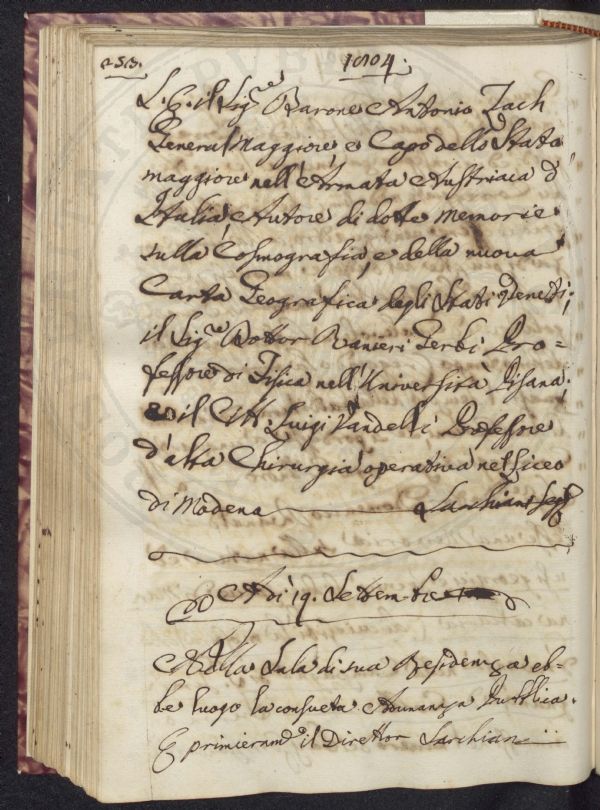 253. 1804.
S. E. il Sig.re Barone Antonio Zach
General Maggiore, e Capo dello Stato
maggiore nell'Armata Austriaca d'
Italia, Autore di dotte Memorie
sulla Cosmografia, e della nuova
Carta Geografica degli Stati Veneti;
il Sig.re Dottor Ranieri Gerbi Pro=
fessore di Fisica nell'Università Pisana;
ed il Citt: Luigi Vandelli Professore
d'alta Chirurgia operativa nel Liceo
di Modena Sarchiani Seg.
A dì 19. Settembre
Nella Sala di sua Residenza eb-
be luogo la consueta Adunanza Pubblica.
E primieram.e il Direttor Sarchiani